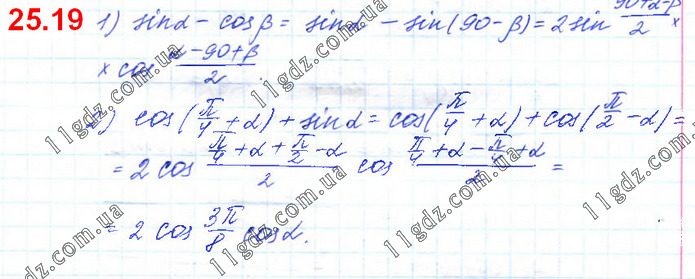 25.19 1) sinα - cosβ = sinα - sin(90-β) = 2 sin (90+α-β)/2 ×
× cos (α-90+β)/2
2) cos(π/4 + α) + sinα = cos(π/4 + α) + cos(π/2 - α) =
= 2 cos (π/4 + α + π/2 - α)/2 cos (π/4 + α - π/4 + α)/2 =
= 2 cos 3π/8 cosα.
11gdz.com.ua
11gdz.com.ua
11gdz.com.ua
11gdz.com.ua
11gdz.com.ua